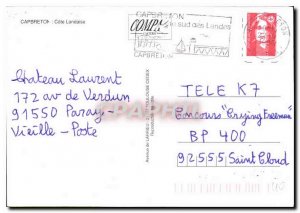 CAPBRETON : Côte Landaise
CAPBRETON
sud des Landes
CAPBRETON
Chateau Laurent
172 av de Verdun
91550 Paray-
Vieille-Poste
TELE K7
Concours "Crying Freeman"
BP 400
92555 Saint Cloud